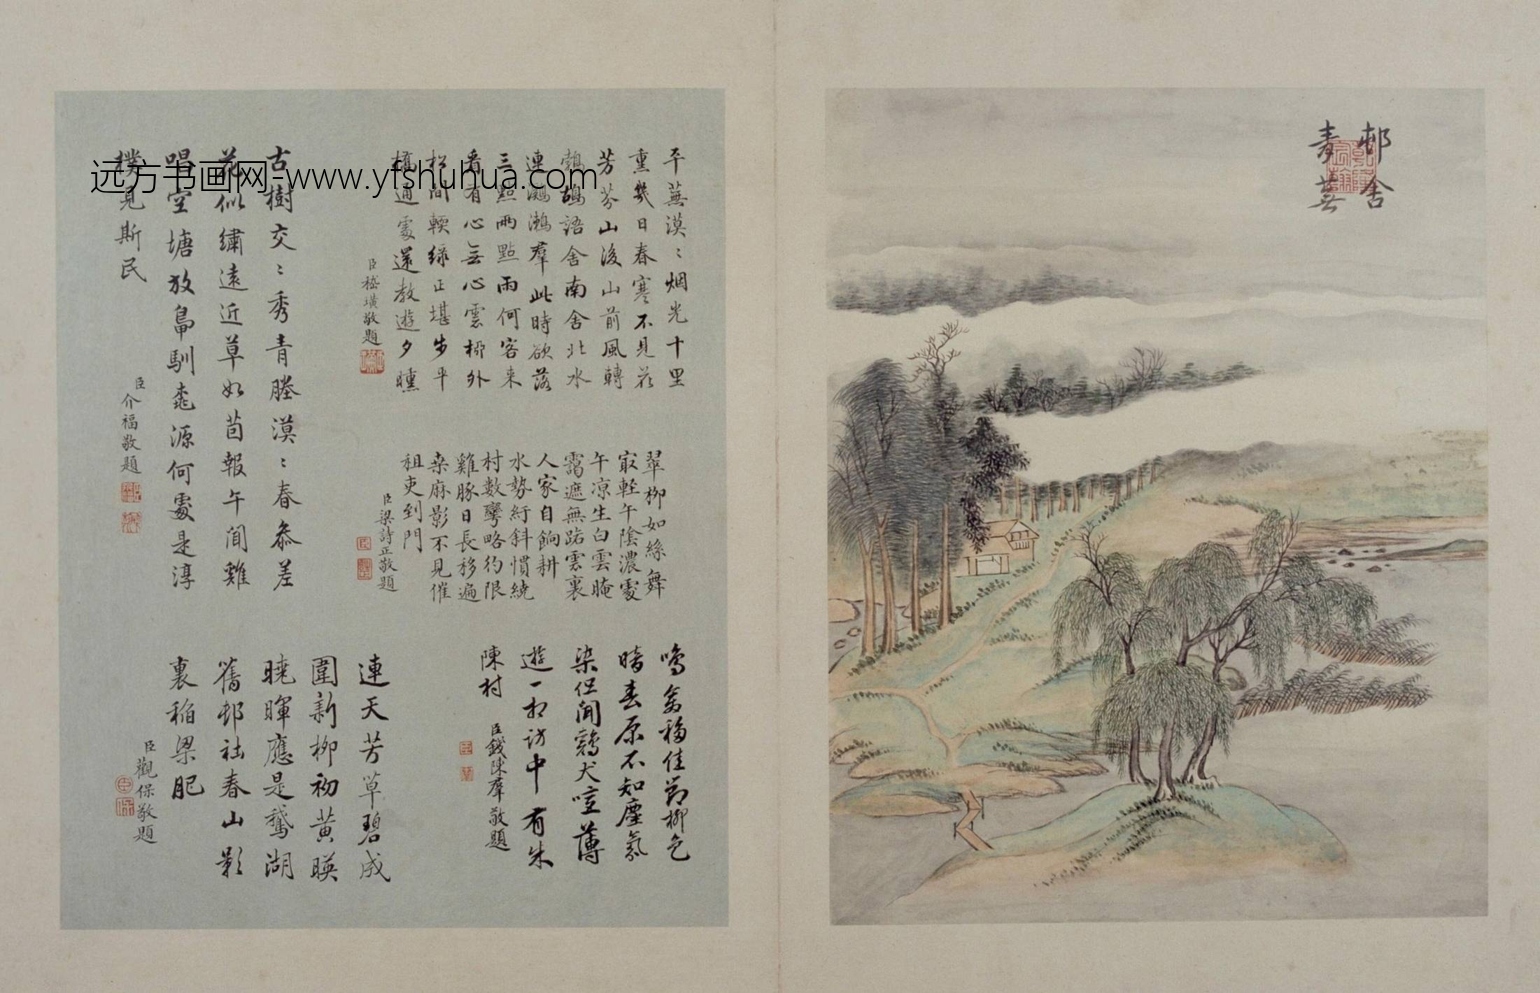 邨舍
青蕪
平蕪漠〻烟光十里
重幾日春寒不見花
芳芬山後山前風轉
鷓鴣語舍南舍北水
連鸂鶒羣此時欲落
三點兩點雨何客来
看有心無心雲柳外
松間輭綠正堪步平
橋通處還教遊夕曛
臣嵇璜敬題
翠柳如絲舞
㝡輕午陰濃處
午凉生白雲晻
靄遮無跡雲裏
人家自餉耕
水勢紆斜慣繞
村數彎略彴限
雞豚日長移遍
桑麻影不見催
租吏到門
臣梁詩正敬題
佳節柳色
暗春原不知塵氛
染但聞鷄犬喧薄
遊一相訪中有朱
陳村
臣錢陳羣敬題
古樹交〻秀青塍漠〻春叅差
花似繡遠近草如茵報午聞雞
唱空塘放鳬馴桃源何處是淳
樸見斯民
臣介福敬題
連天芳草碧成
圍新柳初黄暎
曉暉應是鵝湖
舊邨社春山影
裏稲梁肥
臣觀保敬題
远方书画网-www.yfshuhua.com